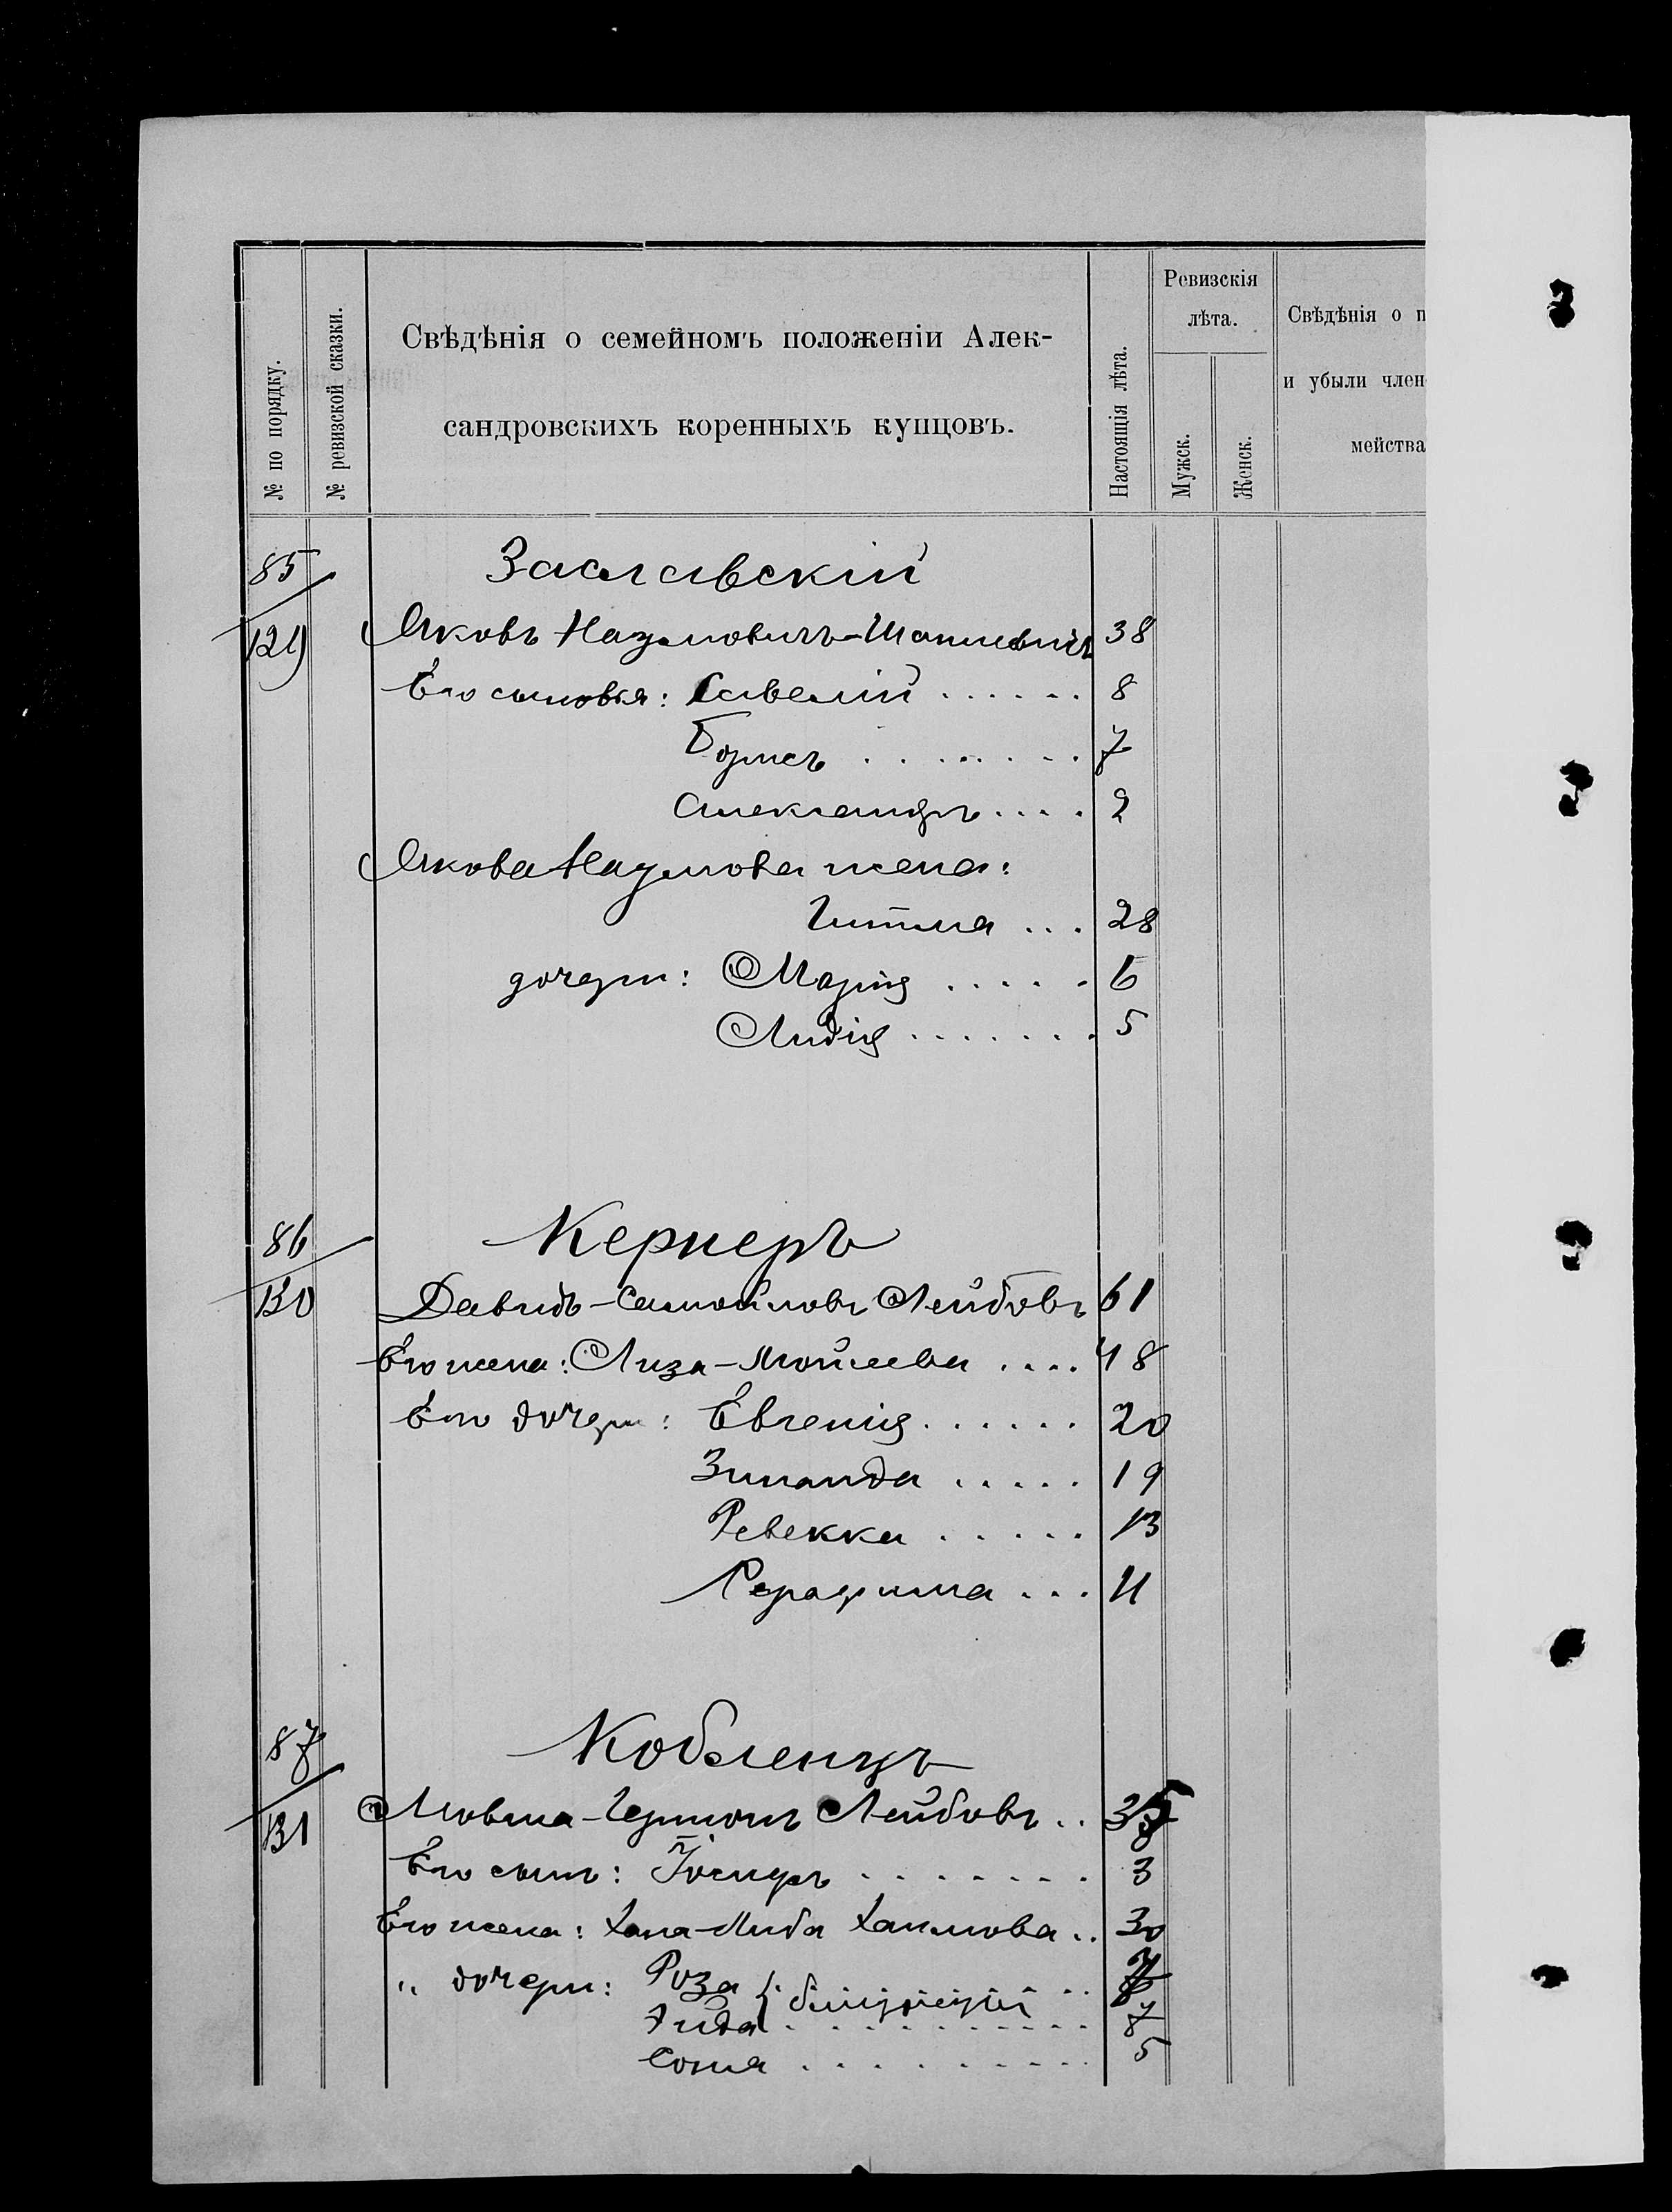 № по порядку.
№ ревизской сказки.
Свѣдѣнія о семейномъ положеніи Алек-
сандровскихъ коренныхъ купцовъ.
Настоящія лѣта.
Ревизскія
лѣта.
Мужск.
Женск.
Свѣдѣнія о п
и убыли член
мейства
85
Заславскій
129 Яковъ 38
Его сыновья: Савелій ...... 8
Борисъ ....... 7
Александръ .... 2
Якова жена:
Гитля ... 28
дочери: Марія ..... 6
Лидія ....... 5
86
Кернеръ
130 Давидъ-Самойловъ Лейбовъ 61
Его жена: Лиза-Мойсеева .... 48
Его дочери: Евгенія ...... 20
Зинаида ..... 19
Ревекка ..... 13
Серафима ... 11
87
Кобленцъ
131 Мовша-Германъ Лейбовъ .. 35
Его сынъ: Іосифъ ....... 3
Его жена: Хана-Люба Хаимова .. 30
„ дочери: Роза } близнецы .. 7
7
Соня .......... 5